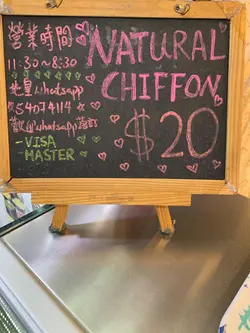 營業時間
11:30~8:30
whatsapp
54074114
歡迎whatsapp
-VISA
-MASTER
NATURAL
CHIFFON
$20